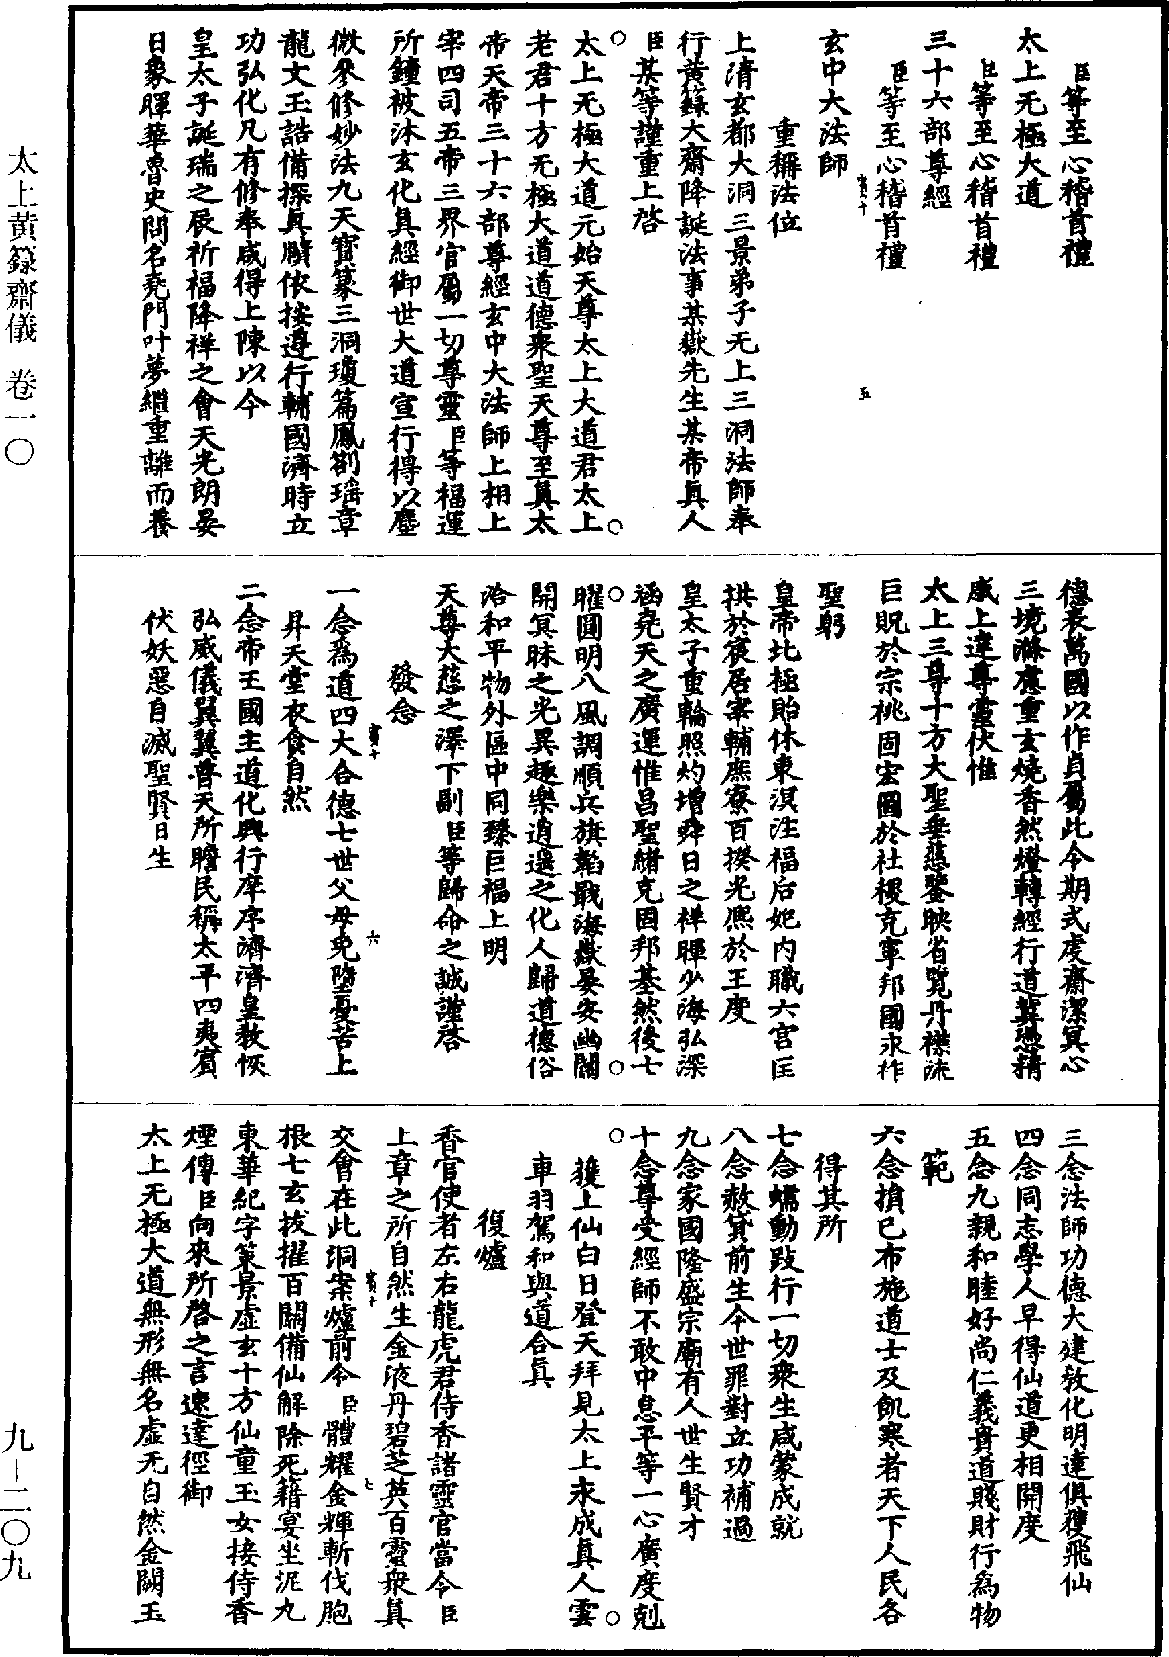 太上黃籙齋儀　卷一〇
九—二〇九
臣等至心稽首禮
太上无極大道
臣等至心稽首禮
三十六部尊經
臣等至心稽首禮
玄中大法師
重稱法位
上清玄都大洞三景弟子无上三洞法師奉
行黃籙大齋降誕法事某嶽先生某帝真人
臣某等謹重上啓
太上无極大道元始天尊太上大道君太上
老君十方无極大道道德衆聖天尊至真太
帝天帝三十六部尊經玄中大法師上相上
宰四司五帝三界官屬一切尊靈臣等福運
所鍾被沐玄化真經御世大道宣行得以塵
微參修妙法九天寶篆三洞瓊篇鳳劄瑤章
龍文玉誥備探真賾依按遵行輔國濟時立
功弘化凡有修奉咸得上陳以今
皇太子誕瑞之辰祈福降祥之會天光朗晏
日象暉華魯史問名堯門叶夢繼重離而養
德表萬國以作貞屬此今期式虔齋潔冥心
三境滌慮重玄燒香然燈轉經行道冀憑精
感上達尊靈伏惟
太上三尊十方大聖垂慈鑒映省覽丹襟疏
巨貺於宗祧固宏圖於社稷克寧邦國永祚
聖躬
皇帝北極貽休東溟注福后妃內職六宮匡
拱於宸居宰輔庶寮百揆光熙於王度
皇太子重輪照灼增舜日之祥暉少海弘深
涵堯天之廣運惟昌聖緒克固邦基然後七
曜圓明八風調順兵旗韜戢海嶽晏安幽關
開冥昧之光異趣樂逍遙之化人歸道德俗
洽和平物外區中同臻巨福上明
天尊大慈之澤下副臣等歸命之誠謹啓
發念
一念爲道四大合德七世父母免墮憂苦上
昇天堂衣食自然
二念帝王國主道化興行庠序濟濟皇教恢
弘威儀翼翼普天所瞻民稱太平四夷賓
伏妖惡自滅聖賢日生
三念法師功德大建教化明達俱獲飛仙
四念同志學人早得仙道更相開度
五念九親和睦好尚仁義貴道賤財行爲物
範
六念損己布施道士及飢寒者天下人民各
得其所
七念蠕動跂行一切衆生咸蒙成就
八念赦貸前生今世罪對立功補過
九念家國隆盛宗廟有人世生賢才
十念尊受經師不敢中怠平等一心廣度剋
獲上仙白日登天拜見太上永成真人雲
車羽駕和與道合真
復爐
香官使者左右龍虎君侍香諸靈官當令臣
上章之所自然生金液丹碧芝英百靈衆真
交會在此洞案爐前令臣體耀金輝斬伐胞
根七玄拔擢百關備仙解除死籍宴坐泥丸
東華紀字策景虛玄十方仙童玉女接侍香
煙傳臣向來所啓之言速達徑御
太上无極大道無形無名虛无自然金闕玉